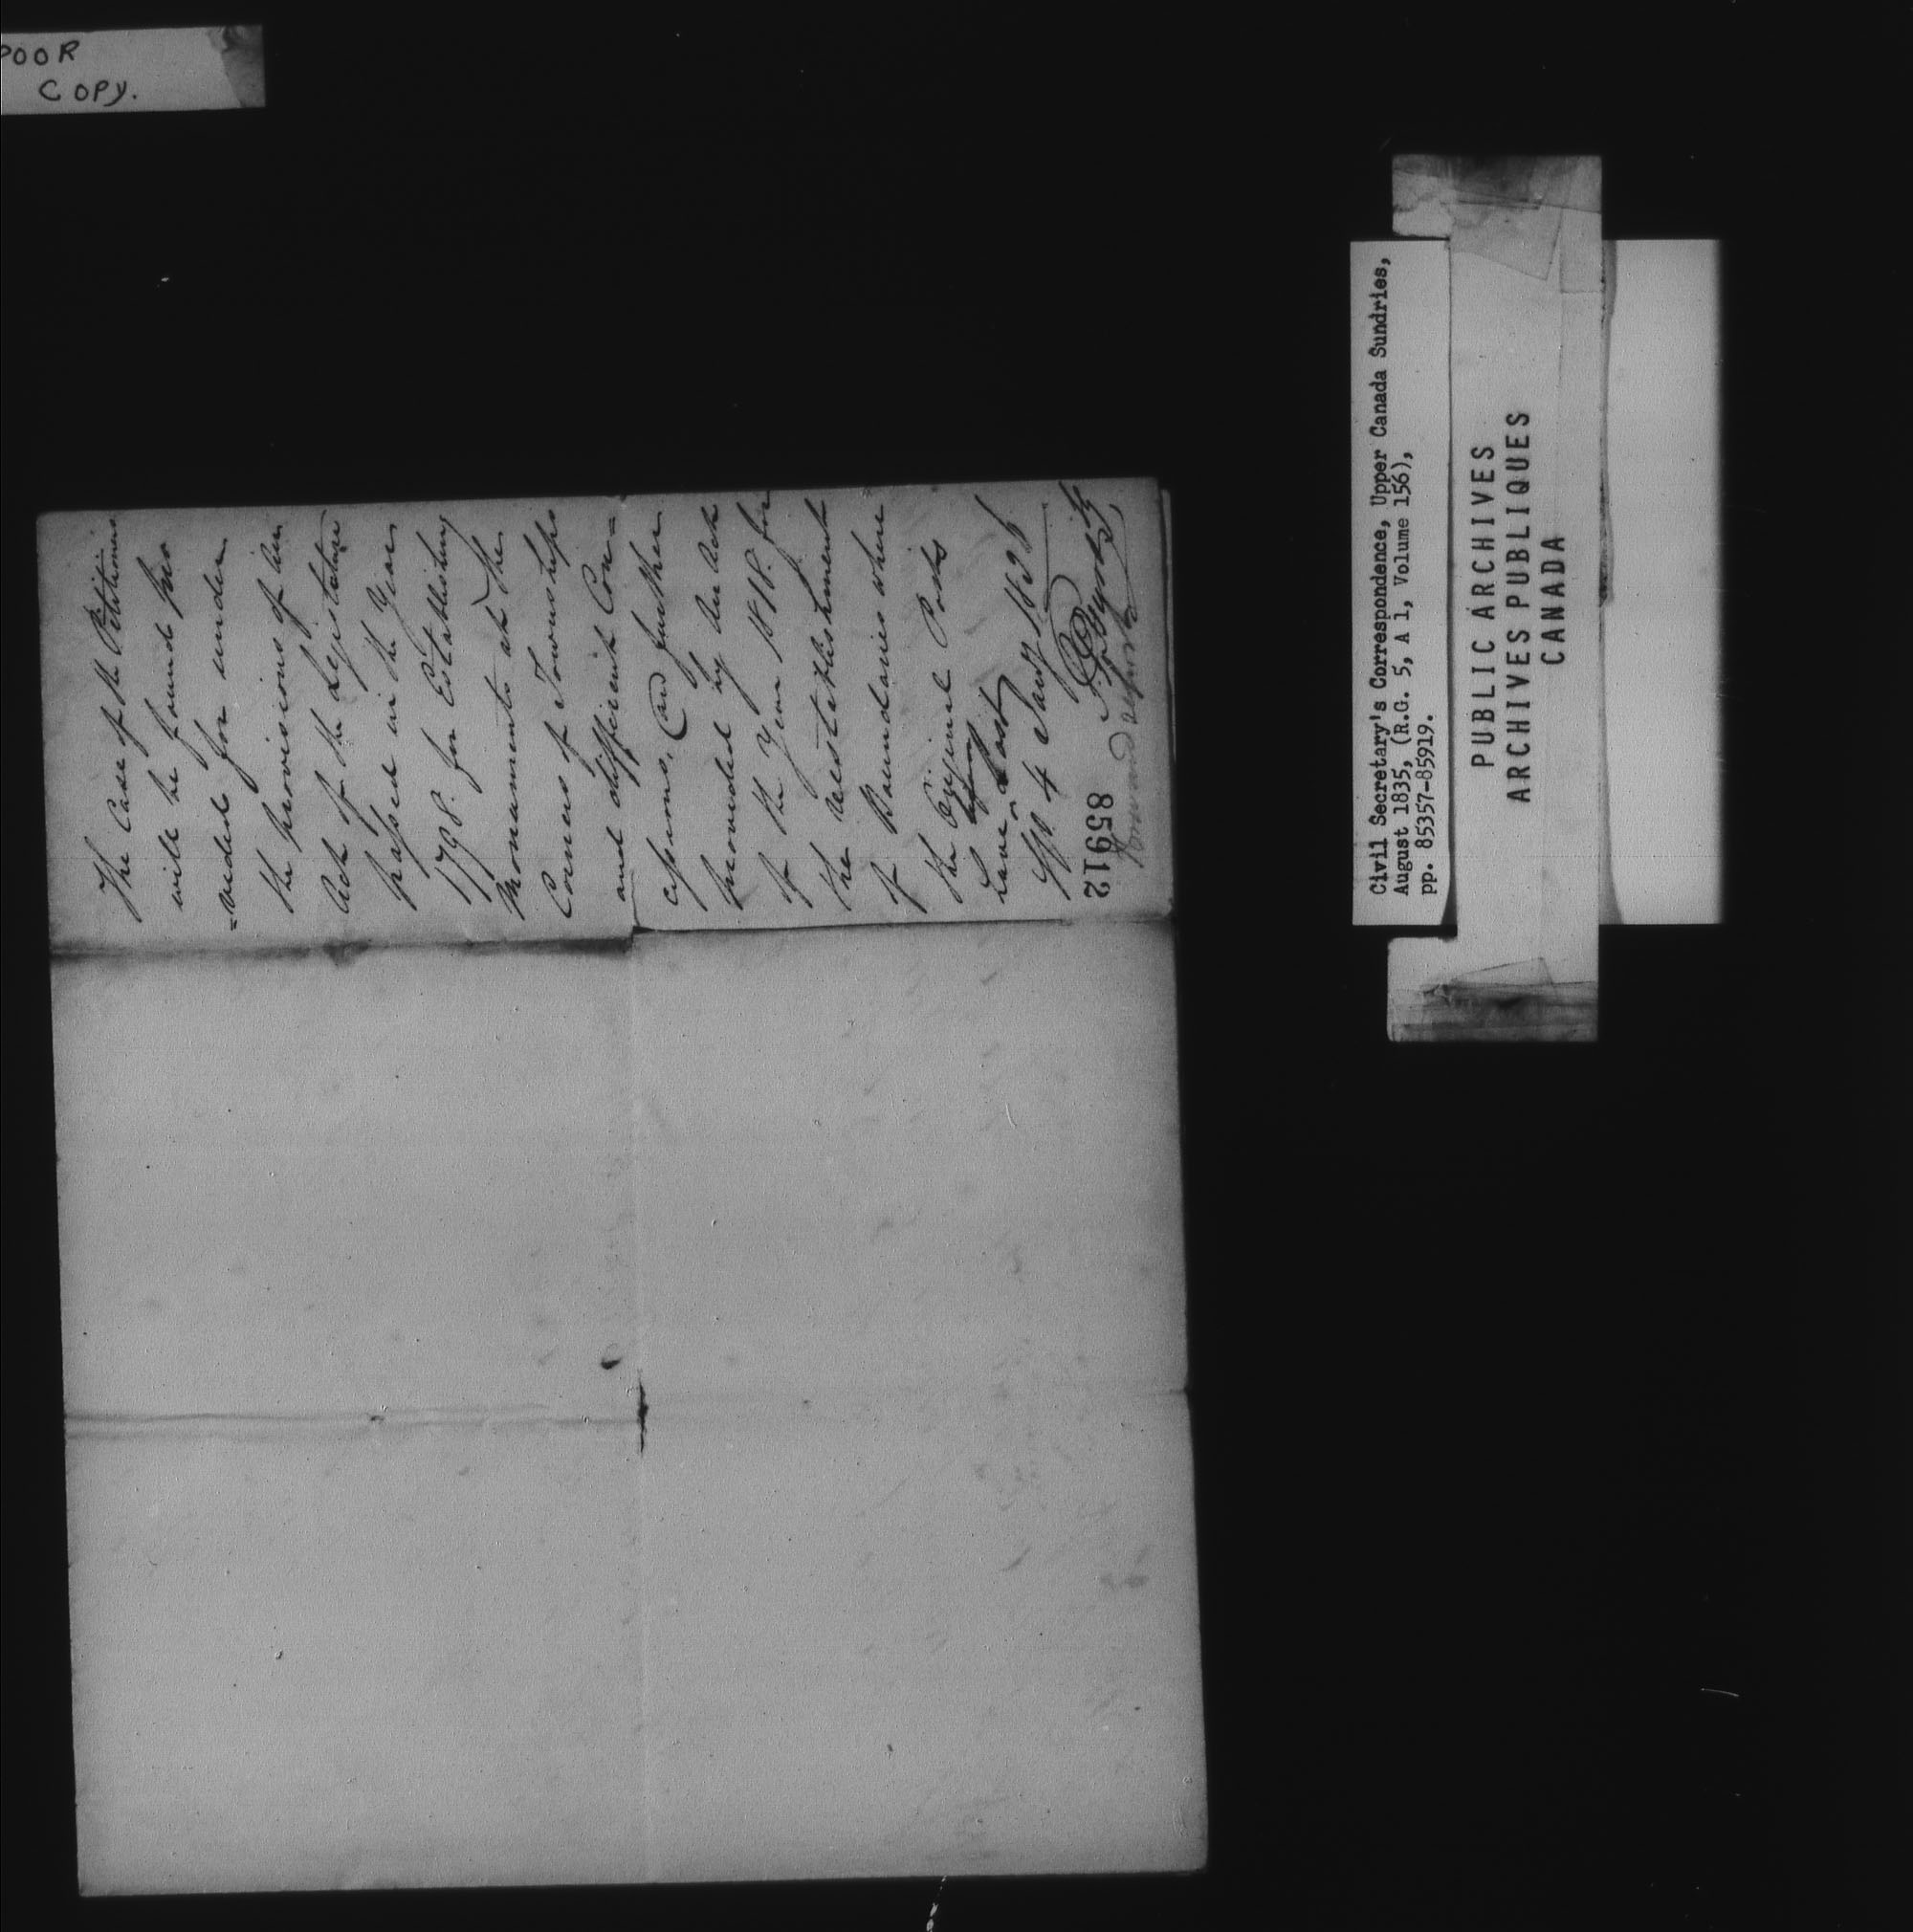 POOR
COPY.
The Case of the Petitioners
will be found pro
=vided for under
the provisions of an
Act of the Legislature
passed in the Year
1798. for Establishing
Monuments at the
Corners of Townships
and different Con=
cessions, and further
provided by an Act
of the Year 1818. for
the
of Boundaries where
the Original Posts
have been Lost
4 Jany 1836
85912
Civil Secretary's Correspondence, Upper Canada Sundries,
August 1835, (R.G. 5, A 1, Volume 156),
pp. 85357-85919.
PUBLIC ARCHIVES
ARCHIVES PUBLIQUES
CANADA